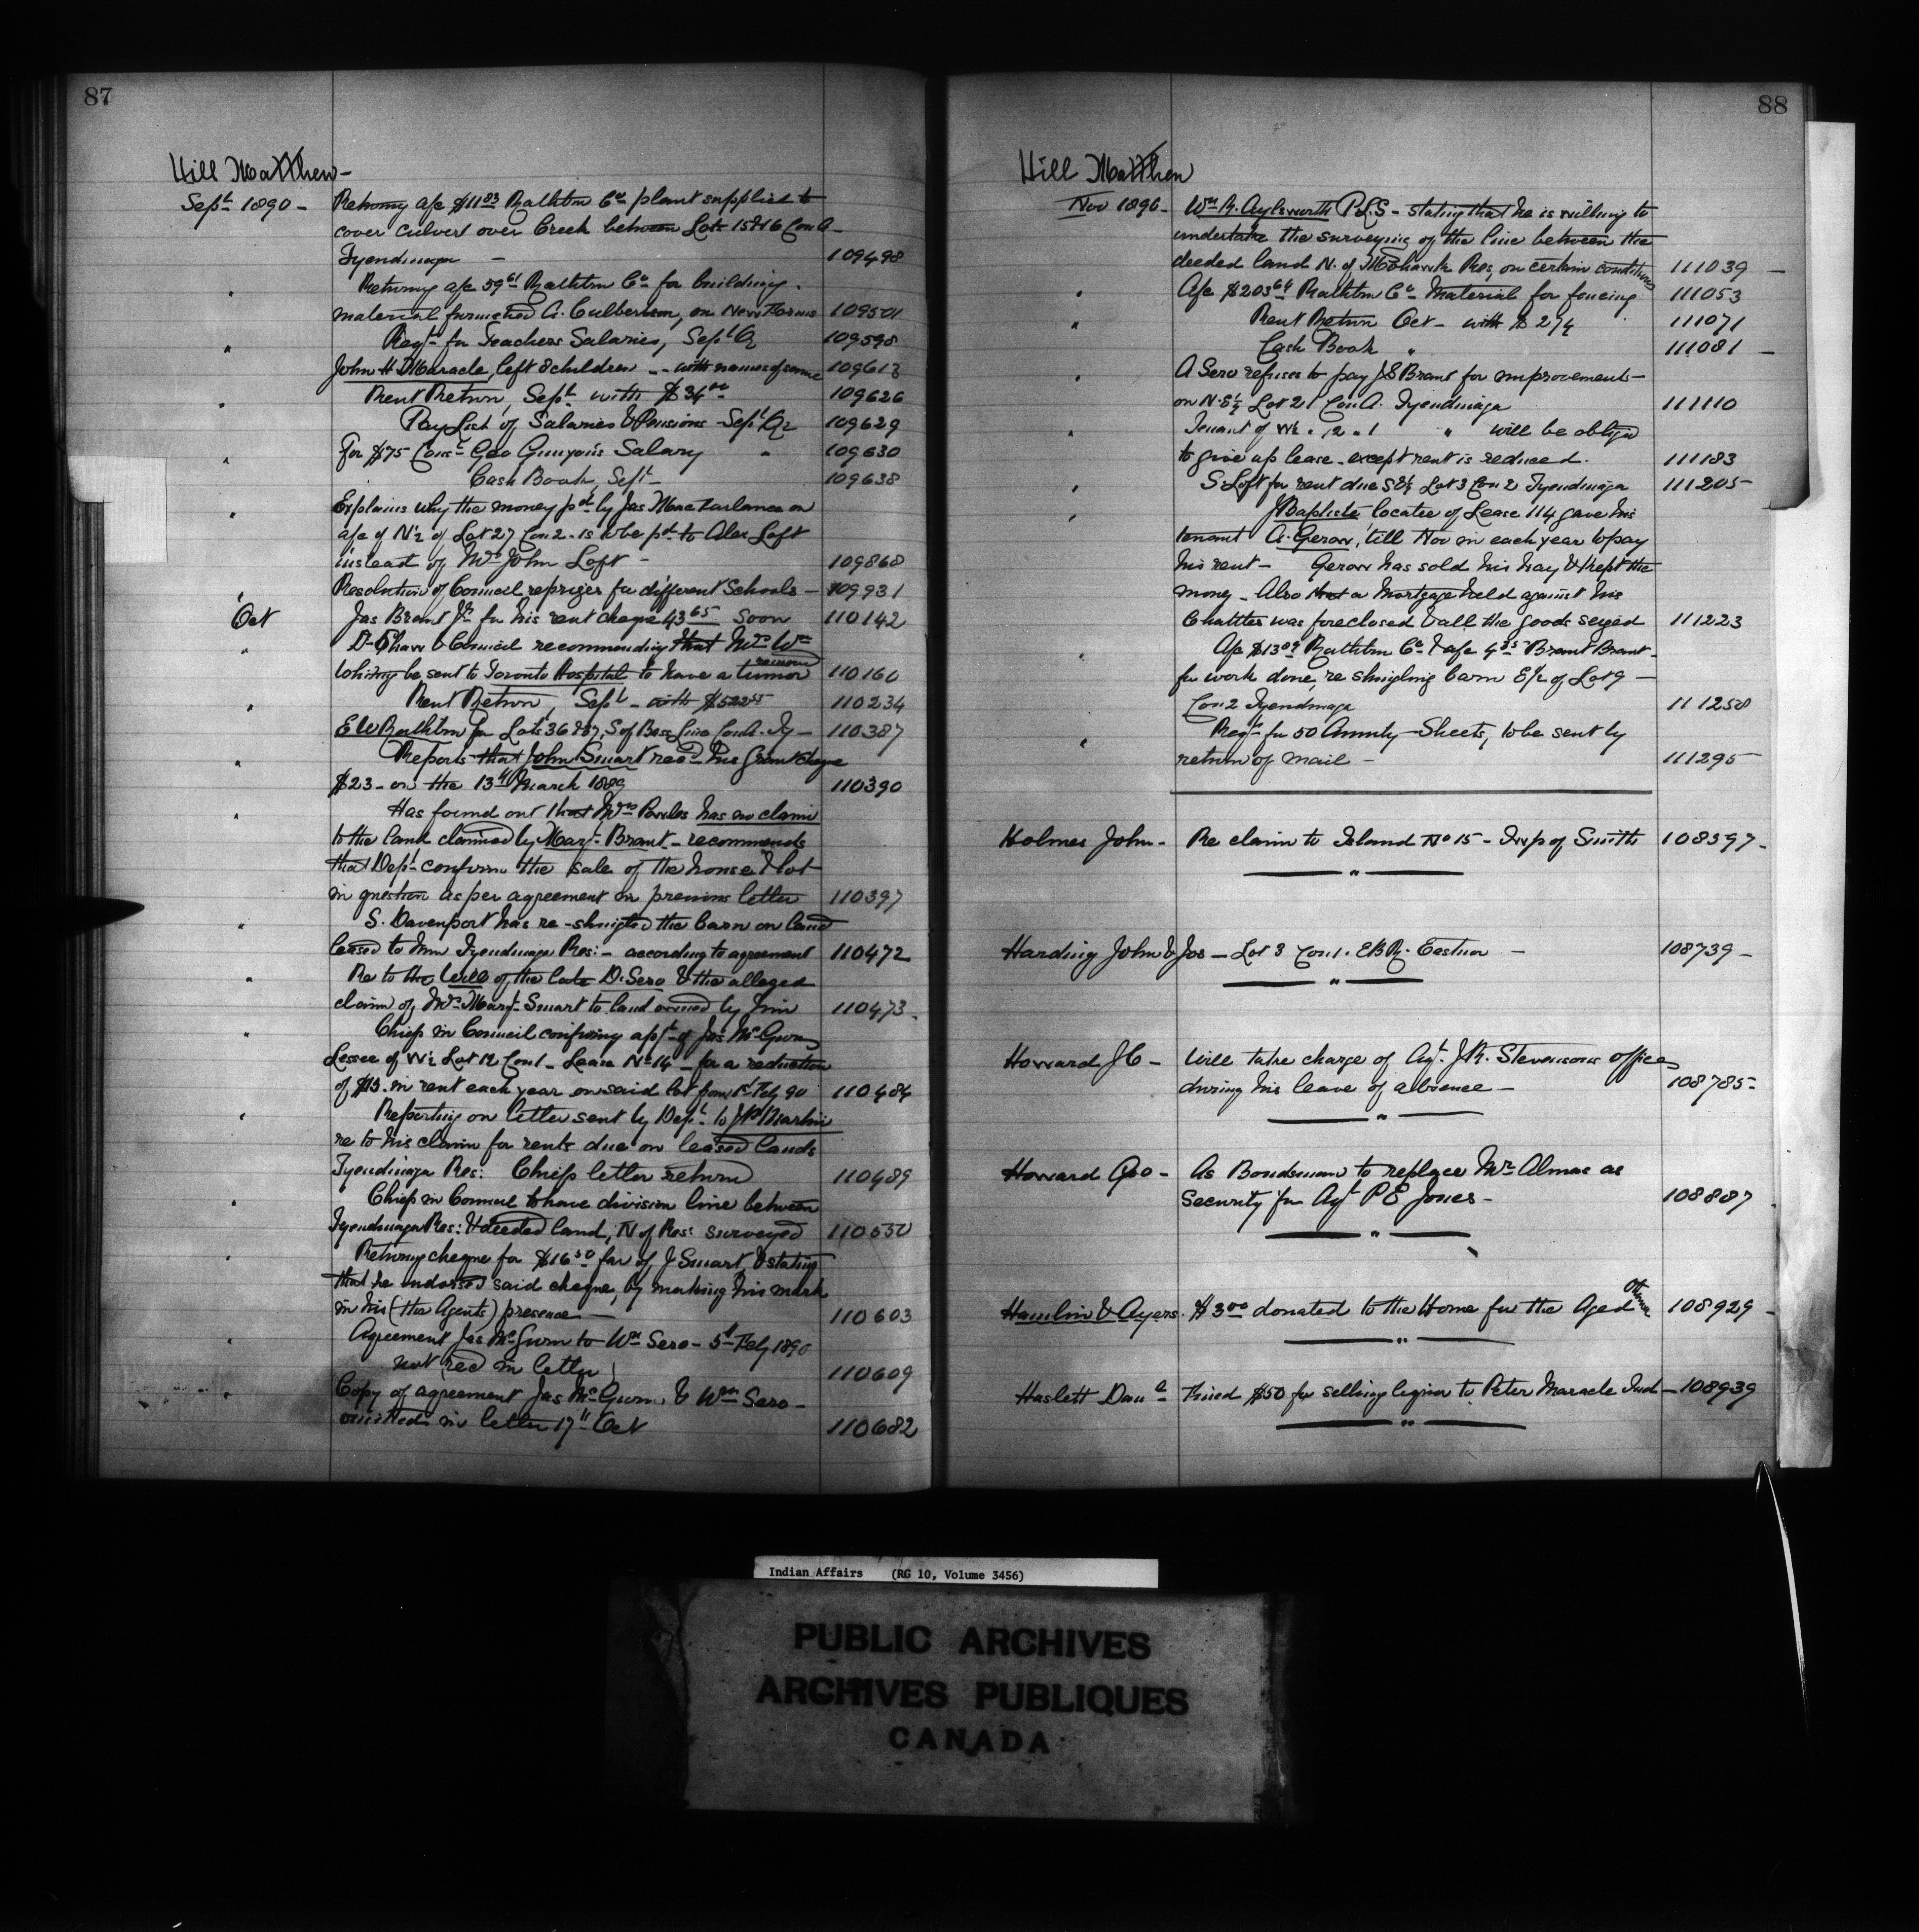 87
Hill Matthew-
Sept 1890 - Returng a/c $11.83 Rathbun Co plant supplied to
cover culvert over Creek between Lots 15 & 16 Con A -
Tyendinaga - 109498
" Returng a/c 59.61 Rathbun Co for building
material furnished A. Culbertson, on New Forms 109501
" Reqt for Teachers Salaries, Sept Qr 109598
John H Maracle, left 8 children - with names of same 109613
" Rent Return, Sept with $34.00 109626
Pay List of Salaries & Pensions Sept Qr 109629
" For $75 Geo Gunyou's Salary " 109630
Cash Book, Sept - 109638
" Explains why the money pd by Jas Macfarlane on
a/c of N½ of Lot 27 Con 2 - is to be pd to Alex Loft
instead of Mrs John Loft - 109868
" Resolution of Council re prizes for different Schools - 109931
Oct Jas Brant Jr for his rent cheque 43.65 soon 110142
" & Council recommending that Mrs Wm
be sent to Toronto Hospital to have a tumor removed 110160
" Rent Return, Sept - with $522.55 110234
" E W Rathbun for Lots 36 & 37, S of Base Line Con A. Ty - 110387
" Reports that John Smart recd his grant cheque
$23 - on the 13th March 1889 110390
" Has found out that Mrs Powles has no claim
to the land claimed by Margt Brant - recommends
that Dept confirm the sale of the house & lot
in question as per agreement in previous letter 110397
" S. Davenport has re-shingled the barn on land
leased to him Tyendinaga Res: - according to agreement 110472
" Re to the Will of the late D. Sero & the alleged
claim of Mrs Margt Smart to land owned by him 110473 -
" Chiefs in Council confirming appt of Jas McGurn
Lessee of W½ Lot 12 Con 1 - Lease No 14 - for a reduction
of $13 - in rent each year on said lot from 1st Feby 90 110484
" Reporting on letter sent by Dept to J Martin
re to his claim for rents due on leased lands
Tyendinaga Res: Chiefs letter return 110489
" Chiefs in Council to have division line between
Tyendinaga Res: & deeded land, N of Res: surveyed 110550
" Returng cheque for $16.50 fav of J Smart, & stating
that he endorsed said cheque, by making his mark
in his (the Agents) presence - 110603
" Agreement Jas McGurn to Wm Sero - 5th Feby 1890
not recd in letter 110609
" Copy of agreement Jas McGurn & Wm Sero -
omitted in letter 17th Oct 110682
88
Hill Matthew
Nov 1890 - Wm R. Aylsworth P.L.S - stating that he is willing to
undertake the surveying of the line between the
deeded land N. of Mohawk Res, on certain conditions 111039 -
" A/c $203.64 Rathbun Co Material for fencing 111053
" Rent Return Oct - with $274 111071
Cash Book " 111081 -
" A Sero refuses to pay J S Brant for improvements -
on N. E¼ Lot 21 Con A. Tyendinaga 111110
" Tenant of W½ " 12 " 1 " will be obliged
to give up lease - except rent is reduced. 111183
" S. Loft for rent due S E¼ Lot 3 Con 2 Tyendinaga 111205 -
" J Baptiste locatee of Lease 114 gave his
tenant A. Gerow, till Nov in each year to pay
his rent - Gerow has sold his hay & kept the
money - Also that a Mortgage held against his
Chattles was foreclosed & all the goods seized 111223
" A/c $13.09 Rathbun Co & a/c Brant Brant -
for work done, re shingling barn E½ of Lot 9 -
Con 2 Tyendinaga 111258
" Reqt for 50 Annuity Sheets, to be sent by
return of mail - 111295 -
Holmes John - Re claim to Island No 15 - Twp of Smith 108397 -
"
Harding John & Jos - Lot 3 Con 1. E B R. Eastnor - 108739 -
"
Howard J C - Will take charge of Agt J. R. Stevensons office
during his leave of absence - 108785 -
"
Howard Geo - As Bondsman to replace Mr Almas as
Security for Agt P E Jones - 108887
"
Hamlin & Ayers. $3.00 donated to the Home for the Aged Ottawa 108929 -
"
Haslett Danl Fined $50 for selling liquor to Peter Maracle Ind - 108939
"
Indian Affairs (RG 10, Volume 3456)
PUBLIC ARCHIVES
ARCHIVES PUBLIQUES
CANADA